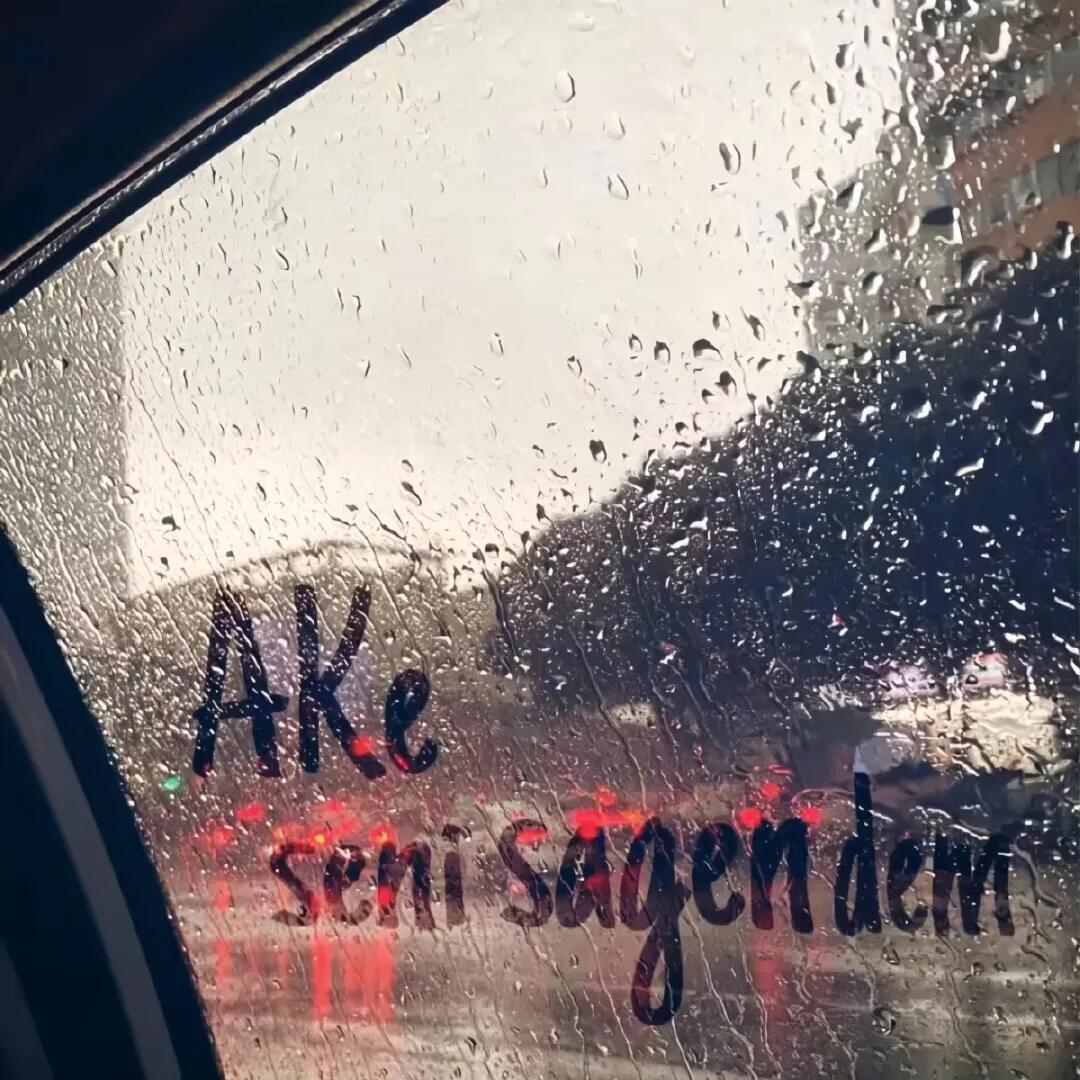 AKe
seni sagen dem